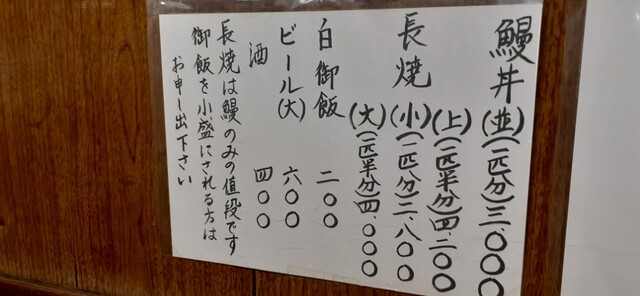 鰻丼(並)(一匹分)三.〇〇〇
(上)(一匹半分)四.二〇〇
長焼(小)(一匹分)二.八〇〇
(大)(一匹半分)四.〇〇〇
白御飯 二〇〇
ビール(大) 六〇〇
酒 四〇〇
長焼は鰻のみの値段です
御飯を小盛にされる方は
お申し出下さい